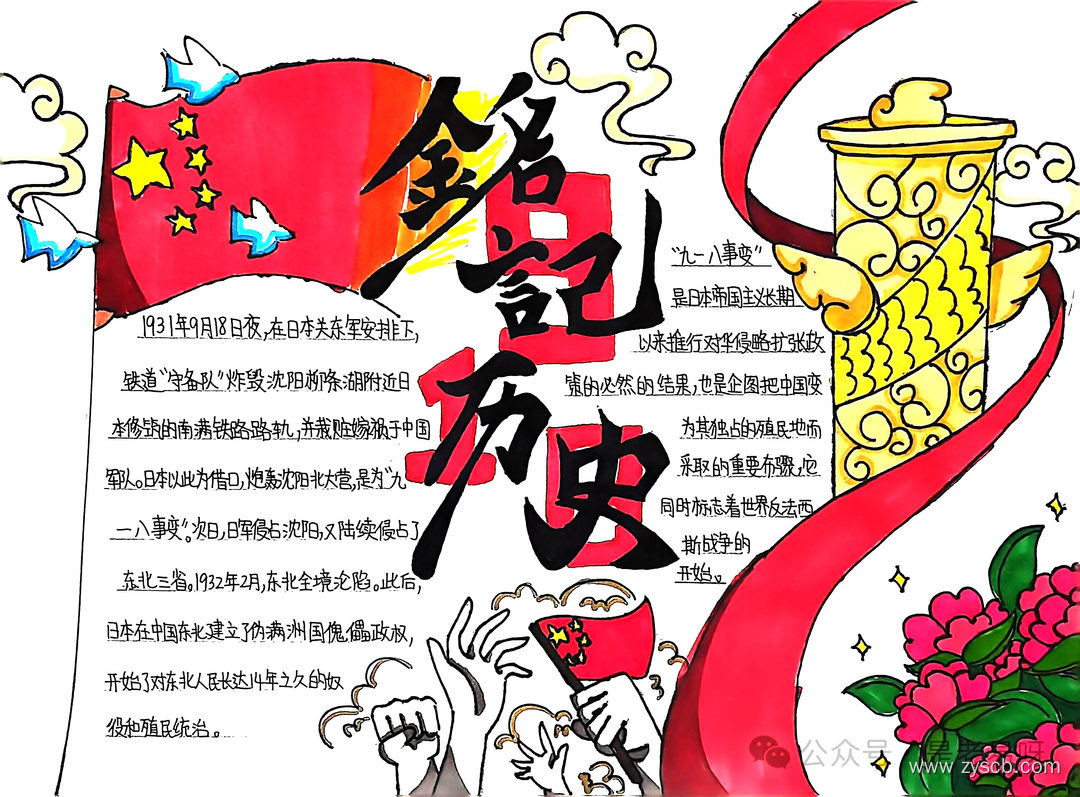 銘記
历史
1931年9月18日夜,在日本关东军安排下,
铁道“守备队”炸毁沈阳柳条湖附近日
本修筑的南满铁路路轨,并栽赃嫁祸于中国
军队。日本以此为借口,炮轰沈阳北大营,是为“九
一八事变”。次日,日军侵占沈阳,又陆续侵占了
东北三省。1932年2月,东北全境沦陷。此后,
日本在中国东北建立了伪满洲国傀儡政权,
开始了对东北人民长达14年之久的奴
役和殖民统治。
“九一八事变”
是日本帝国主义长期
以来推行对华侵略扩张政
策的必然的结果,也是企图把中国变
为其独占的殖民地而
采取的重要步骤,它
同时标志着世界反法西
斯战争的
开始。
公众号
www.zyscb.com